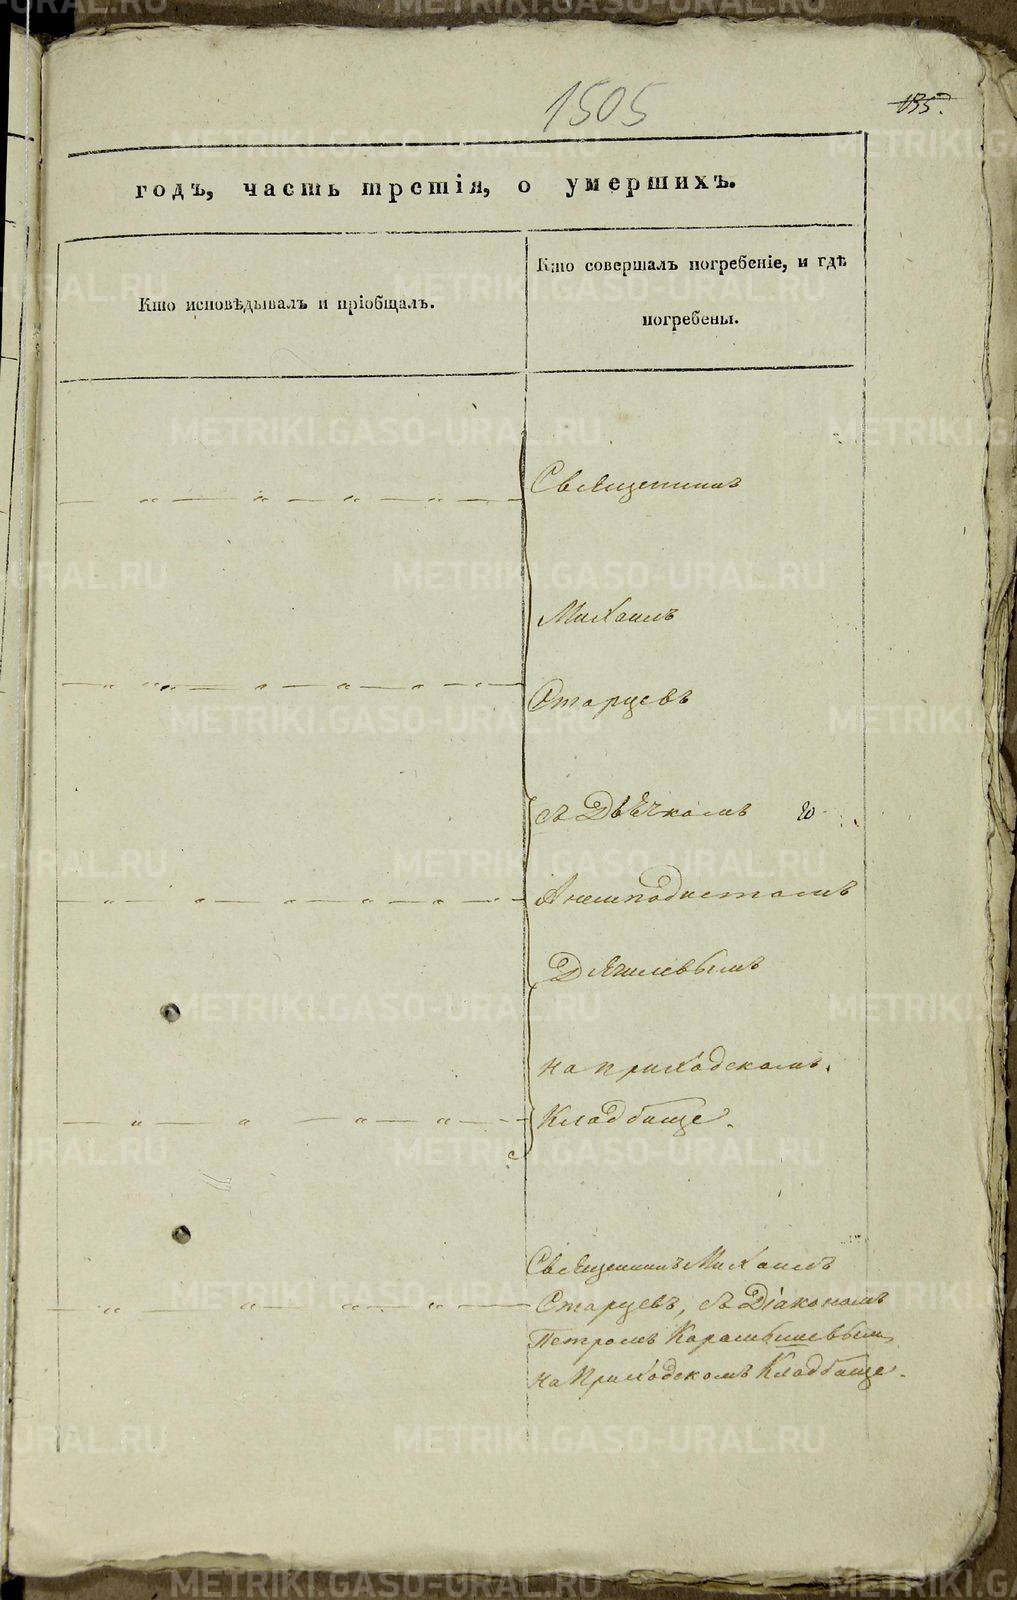 1505
135.
годъ, часть третія, о умершихъ.
Кто исповѣдывалъ и пріобщалъ.
Кто совершалъ погребеніе, и гдѣ
погребены.
Священникъ
Михаилъ
Старцевъ
съ Дьячкомъ
Анемподистомъ
Дягилевымъ
на приходскомъ
Кладбище.
Священникъ Михаилъ
Старцевъ, съ Діакономъ
Петромъ Карамышевым
на Приходскомъ Кладбище.
METRIKI.GASO-URAL.RU